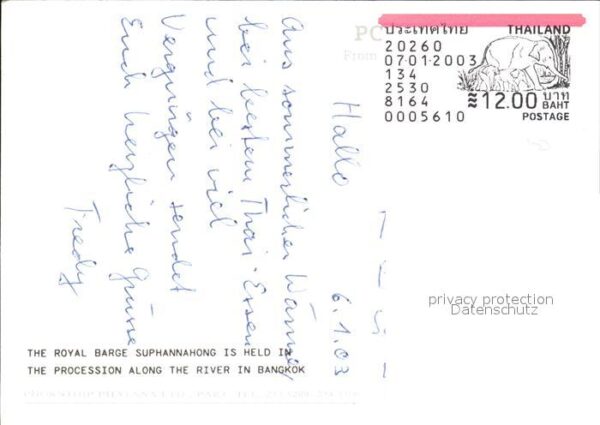 ประเทศไทย THAILAND
20260
07·01·2003
134
2530
8164
0005610
≋12.00 บาท BAHT
POSTAGE
PC
From
Hallo 6.1.03
Aus sommerlicher Wärme,
bei bestem Thai-Essen
und bei viel
Vergnügen sendet
Euch herzliche Grüsse
Fredy
privacy protection
Datenschutz
THE ROYAL BARGE SUPHANNAHONG IS HELD IN
THE PROCESSION ALONG THE RIVER IN BANGKOK